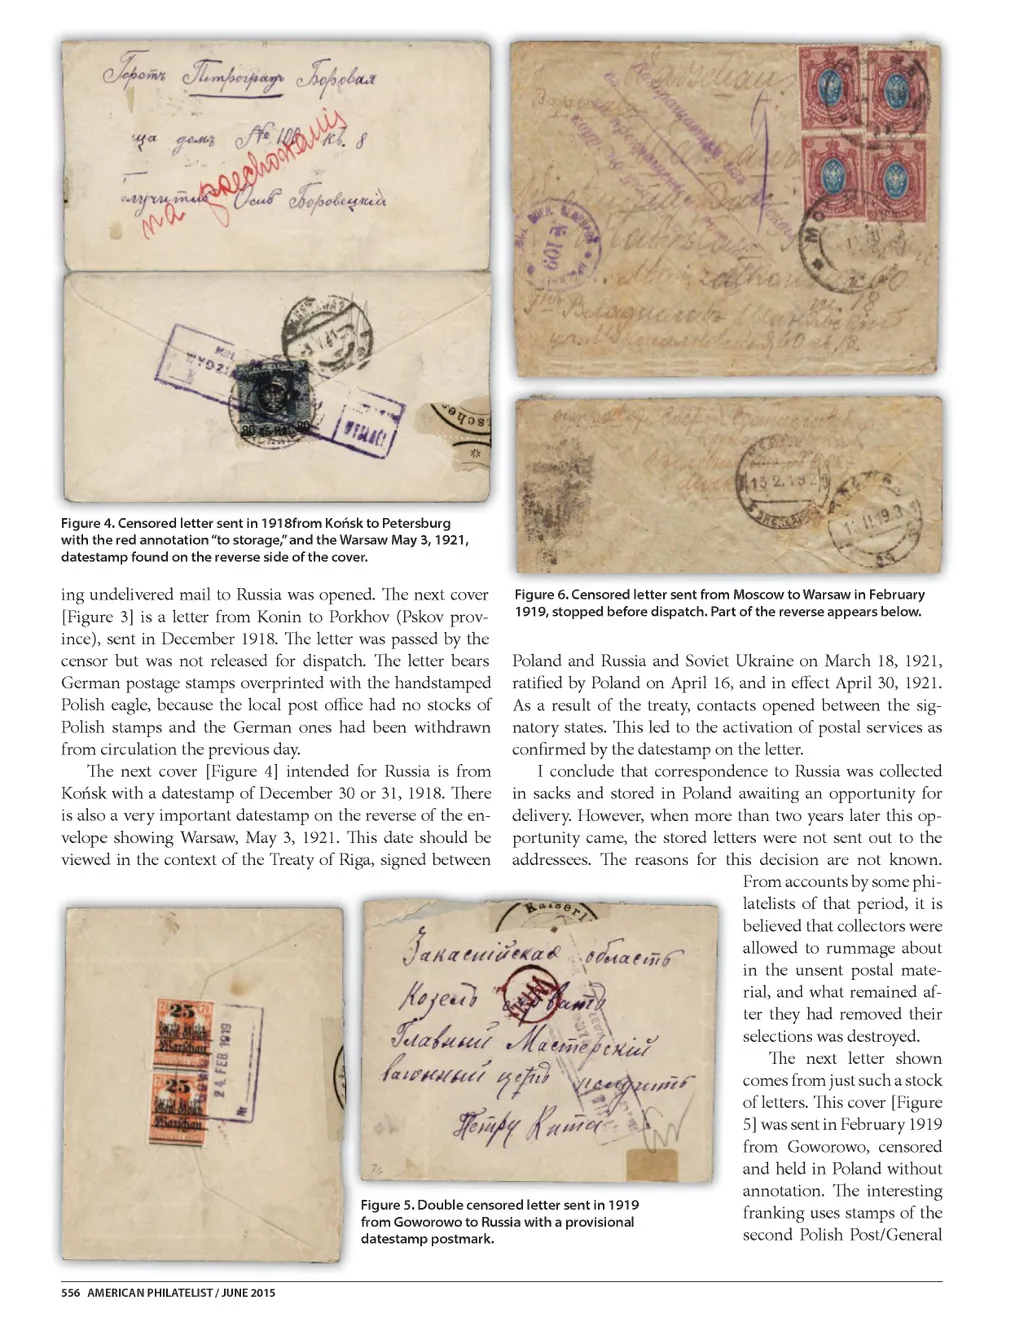 Городъ Петроградъ Боровая
ща домъ № 108 кв. 8
на przechowanie
Осив Боровецкій
WARSZAWA
WYSŁAĆ
Figure 4. Censored letter sent in 1918from Końsk to Petersburg
with the red annotation “to storage,” and the Warsaw May 3, 1921,
datestamp found on the reverse side of the cover.
ing undelivered mail to Russia was opened. The next cover
[Figure 3] is a letter from Konin to Porkhov (Pskov prov-
ince), sent in December 1918. The letter was passed by the
censor but was not released for dispatch. The letter bears
German postage stamps overprinted with the handstamped
Polish eagle, because the local post office had no stocks of
Polish stamps and the German ones had been withdrawn
from circulation the previous day.
The next cover [Figure 4] intended for Russia is from
Końsk with a datestamp of December 30 or 31, 1918. There
is also a very important datestamp on the reverse of the en-
velope showing Warsaw, May 3, 1921. This date should be
viewed in the context of the Treaty of Riga, signed between
Figure 6. Censored letter sent from Moscow to Warsaw in February
1919, stopped before dispatch. Part of the reverse appears below.
Poland and Russia and Soviet Ukraine on March 18, 1921,
ratified by Poland on April 16, and in effect April 30, 1921.
As a result of the treaty, contacts opened between the sig-
natory states. This led to the activation of postal services as
confirmed by the datestamp on the letter.
I conclude that correspondence to Russia was collected
in sacks and stored in Poland awaiting an opportunity for
delivery. However, when more than two years later this op-
portunity came, the stored letters were not sent out to the
addressees. The reasons for this decision are not known.
From accounts by some phi-
latelists of that period, it is
believed that collectors were
allowed to rummage about
in the unsent postal mate-
rial, and what remained af-
ter they had removed their
selections was destroyed.
The next letter shown
comes from just such a stock
of letters. This cover [Figure
5] was sent in February 1919
from Goworowo, censored
and held in Poland without
annotation. The interesting
franking uses stamps of the
second Polish Post/General
25
Warschau
25
Warschau
24. FEB. 1919
Nr
Kaiserl
Закаспійская область
Главный Мастерскій
вагонный цехъ получить
Петру Кита
Figure 5. Double censored letter sent in 1919
from Goworowo to Russia with a provisional
datestamp postmark.
556 AMERICAN PHILATELIST / JUNE 2015